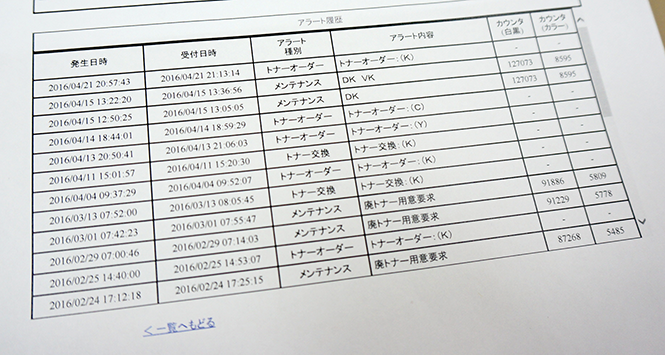 アラート履歴
発生日時 受付日時 アラート種別 アラート内容 カウンタ(白黒) カウンタ(カラー)
2016/04/21 20:57:43 2016/04/21 21:13:14 トナーオーダー トナーオーダー:(K) - -
2016/04/15 13:22:20 2016/04/15 13:36:56 メンテナンス DK VK 127073 8595
2016/04/15 12:50:25 2016/04/15 13:05:05 メンテナンス DK 127073 8595
2016/04/14 18:44:01 2016/04/14 18:59:29 トナーオーダー トナーオーダー:(C) - -
2016/04/13 20:50:41 2016/04/13 21:06:03 トナーオーダー トナーオーダー:(Y) - -
2016/04/11 15:01:57 2016/04/11 15:20:30 トナー交換 トナー交換:(K) - -
2016/04/04 09:37:29 2016/04/04 09:52:07 トナーオーダー トナーオーダー:(K) - -
2016/03/13 07:52:00 2016/03/13 08:05:45 トナー交換 トナー交換:(K) - -
2016/03/01 07:42:23 2016/03/01 07:55:47 メンテナンス 廃トナー用意要求 91886 5809
2016/02/29 07:00:46 2016/02/29 07:14:03 メンテナンス 廃トナー用意要求 91229 5778
2016/02/25 14:40:00 2016/02/25 14:53:07 トナーオーダー トナーオーダー:(K) - -
2016/02/24 17:12:18 2016/02/24 17:25:15 メンテナンス 廃トナー用意要求 87268 5485
<一覧へもどる